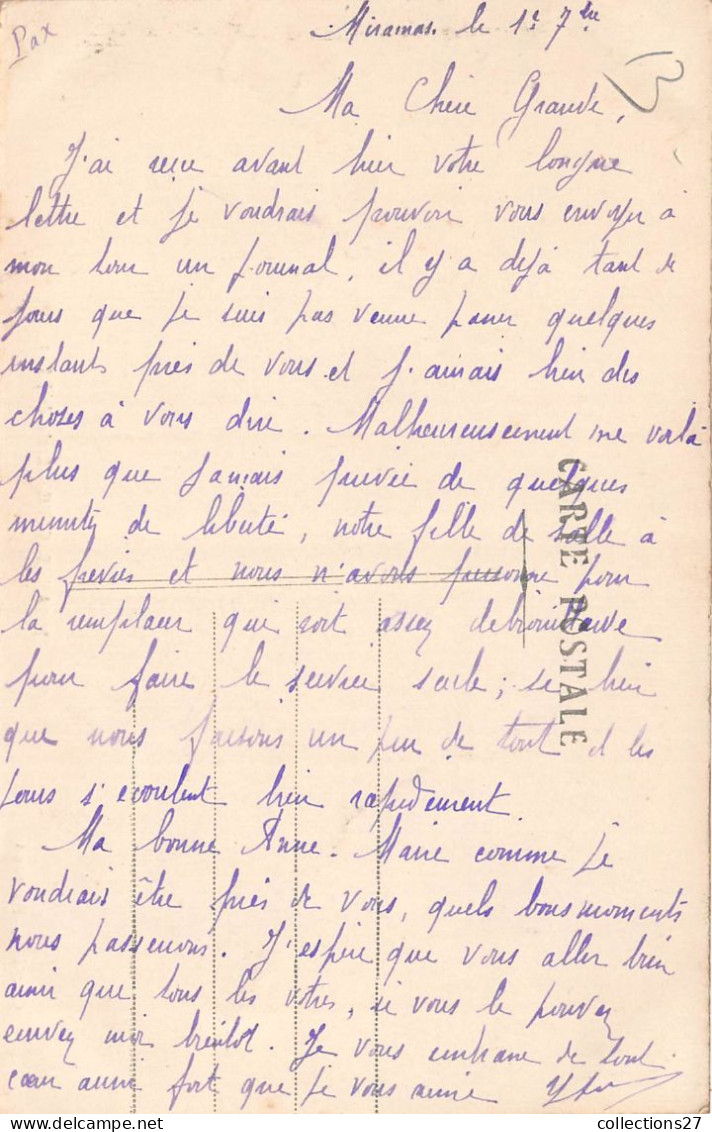 Pax
Miramas. le 1e 7bre
13
Ma Chère Grande,
J'ai reçu avant hier votre longue
lettre et je voudrais pouvoir vous envoyer à
mon tour un journal, il y a déjà tant de
jours que je suis pas venue passer quelques
instants près de vous et j'aurais bien des
choses à vous dire. Malheureusement me voilà
plus que jamais privée de quelques
minutes de liberté, notre fille de salle a
les fièvres et nous n'avons personne pour
la remplacer qui soit assez debrouillarde
pour faire le service seule; si bien
que nous faisons un peu de tout et les
jours s'écoulent bien rapidement.
Ma bonne Anne-Marie comme je
voudrais être près de vous, quels bons moments
nous passerions. J'espère que vous aller bien
ainsi que tous les votres, si vous le pouvez
envoyez moi bientôt. Je vous embrasse de tout
cœur aussi fort que je vous aime
CARTE POSTALE
collections27